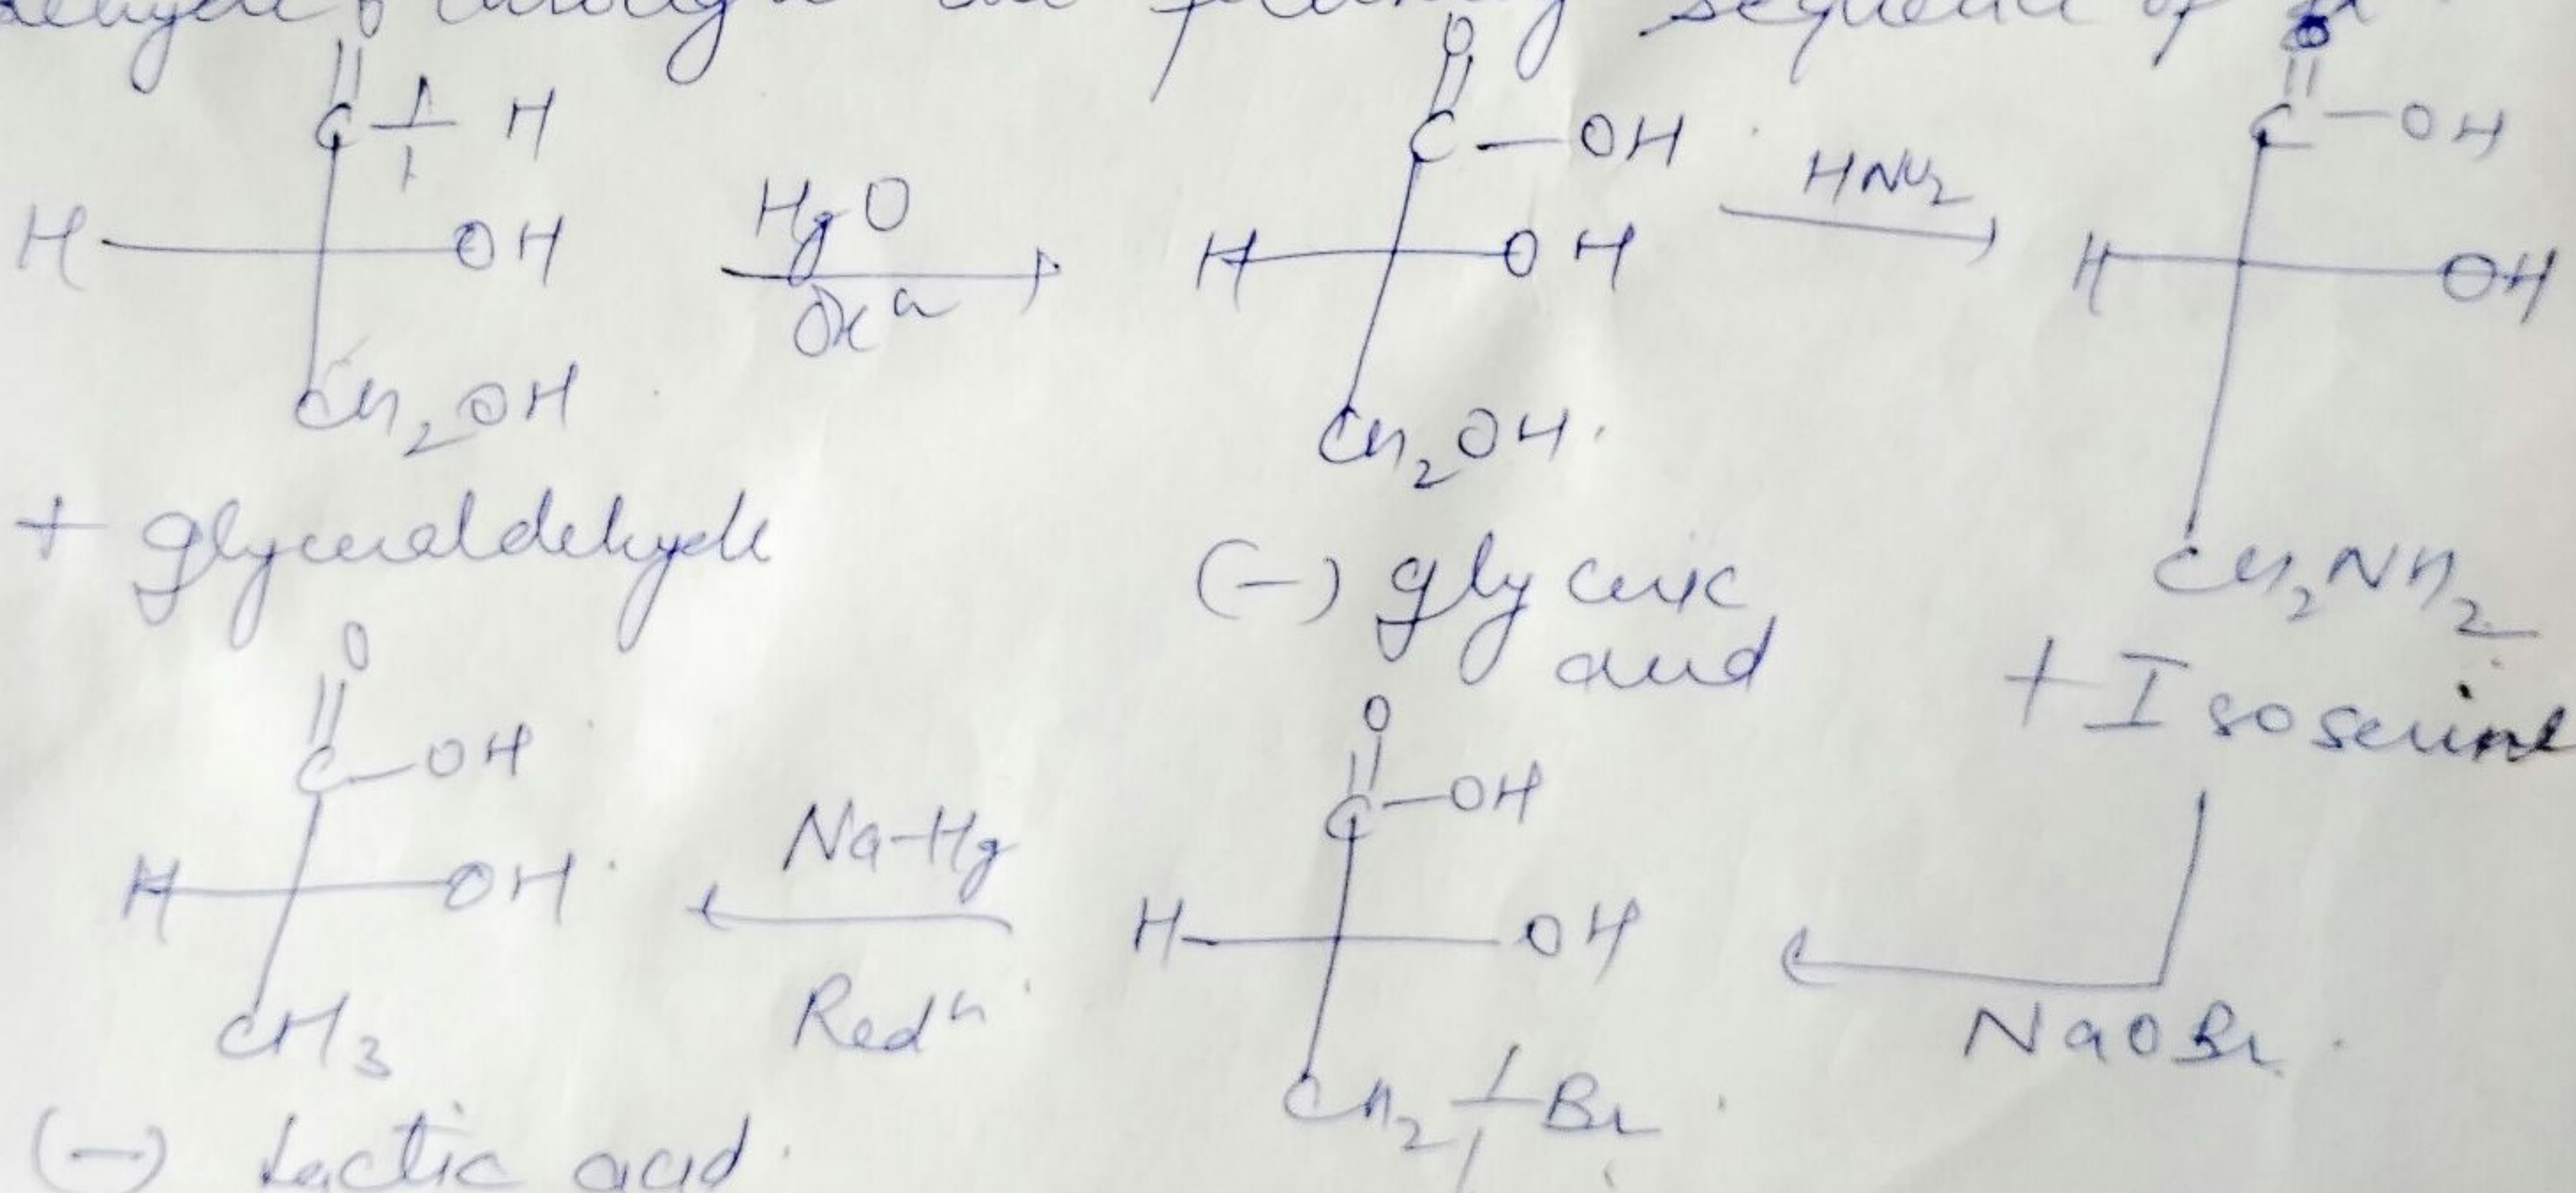 sequence of
O
C H
H OH
CH2OH
+ glyceraldehyde
HgO
Oxn
O
C - OH
H OH
CH2OH.
(-) glyceric
acid
HNO2
O
C - OH
H OH
CH2NH2
+ Isoserine
NaOBr.
O
C - OH
H - OH
CH2 Br
Na-Hg
Redn.
O
C - OH
H OH
CH3
(-) Lactic acid.